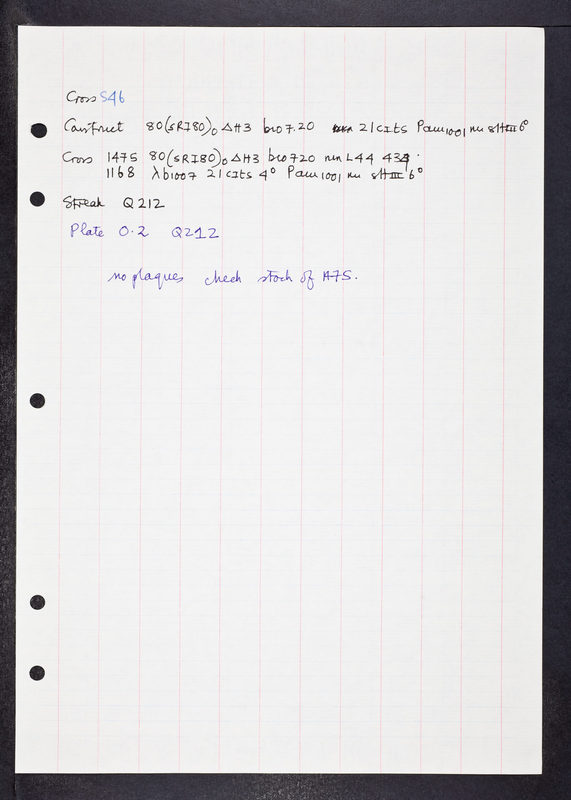 Cross S46
Construct 80(sRI80)₀ ΔH3 bio7.20 21cIts Pam1001 nu sHIII6°
Cross 1475 80(sRI80)₀ ΔH3 bio720 nin L44 434
1168 λb1007 21cIts 4° Pam1001 nu sHIII6°
Streak Q212
Plate 0.2 Q212
no plaques check stock of A75.